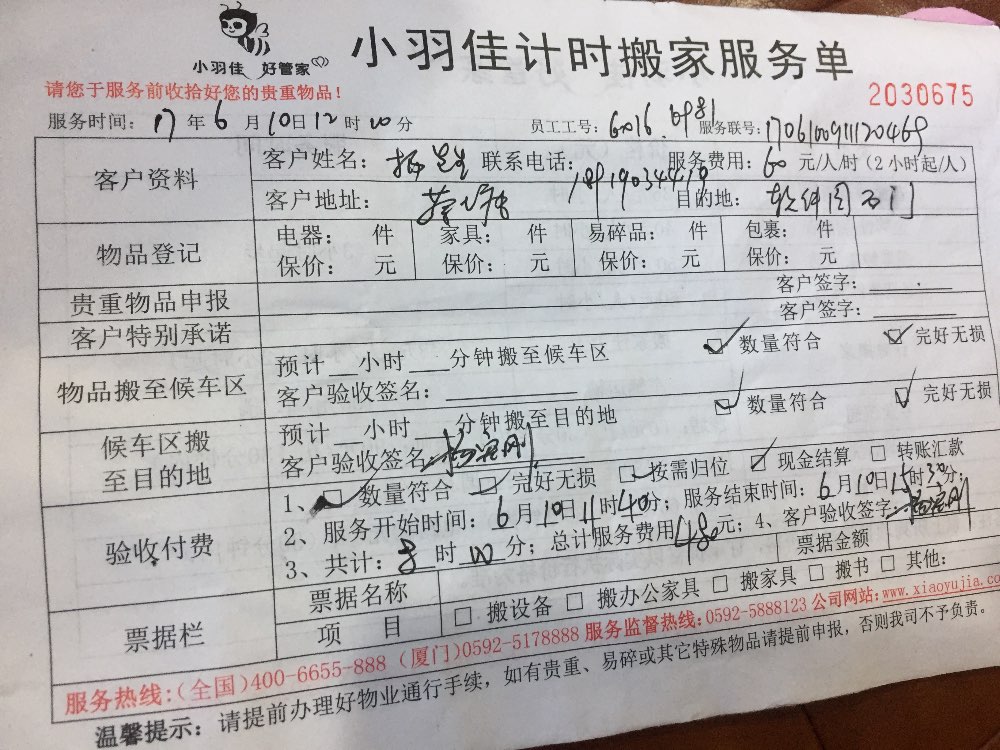 小羽佳 好管家
小羽佳计时搬家服务单
请您于服务前收拾好您的贵重物品！
2030675
服务时间：17年6月10日12时00分 员工工号：6016.6981 服务联号：
客户资料 客户姓名： 联系电话： 服务费用：60元/人/时（2小时起/人）
客户地址： 目的地：
物品登记 电器： 件 家具： 件 易碎品： 件 包裹： 件
保价： 元 保价： 元 保价： 元 保价： 元
贵重物品申报 客户签字：
客户特别承诺 客户签字：
物品搬至候车区 预计__小时___分钟搬至候车区 数量符合 完好无损
客户验收签名：
候车区搬至目的地 预计__小时___分钟搬至目的地 数量符合 完好无损
客户验收签名：
验收付费 1、 数量符合 完好无损 按需归位 现金结算 转账汇款
2、服务开始时间：6月10日11时40分；服务结束时间：6月10日15时30分；
3、共计：8时00分；总计服务费用480元；4、客户验收签字：
票据栏 票据名称 票据金额
项 目 搬设备 搬办公家具 搬家具 搬书 其他：
服务热线：（全国）400-6655-888（厦门）0592-5178888 服务监督热线：0592-5888123 公司网站：www.xiaoyujia.co
温馨提示：请提前办理好物业通行手续，如有贵重、易碎或其它特殊物品请提前申报，否则我司不予负责。